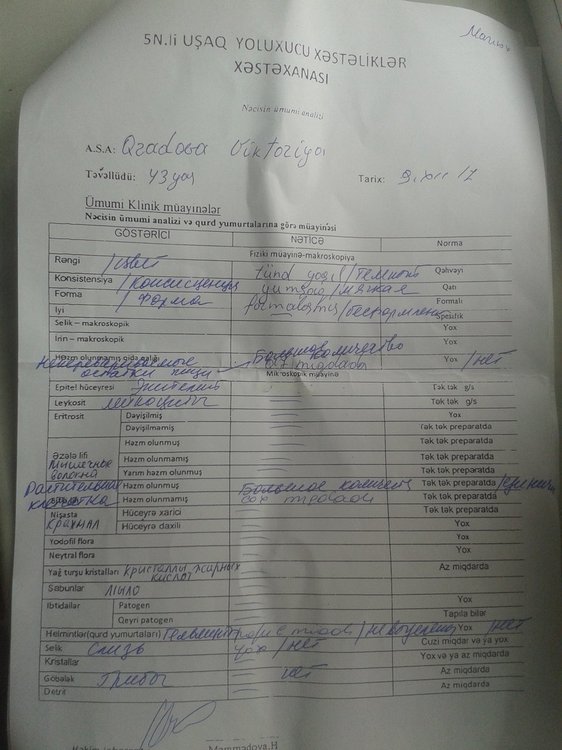 5N.li UŞAQ YOLUXUCU XƏSTƏLİKLƏR
XƏSTƏXANASI
Nəcisin ümumi analizi
A.S.A: Viktoriya
Təvəllüdü: 43 yaş Tarix: 9.XII 17
Ümumi Klinik müayinələr
Nəcisin ümumi analizi və qurd yumurtalarına görə müayinəsi
GÖSTƏRİCİ NƏTİCƏ Norma
Fiziki müayinə-makroskopiya
Rəngi /цвет tünd yaşıl/темный Qəhvəyi
Konsistensiya /консистенция yumşaq/мягкая Qatı
Forma /Форма formalaşmış/бесформенн Formalı
İyi Spesifik
Selik – makroskopik Yox
İrin – makroskopik Yox
Həzm olunmamış qida qalığı Большое количество Yox /нет
непереваренные остатки пищи çox miqdarda
Mikroskopik müayinə
Epitel hüceyrəsi Эпителий Tək tək g/s
Leykosit лейкоциты Tək tək g/s
Eritrosit Dəyişilmiş Yox
Dəyişilməmiş Tək tək preparatda
Əzələ lifi Həzm olunmuş Tək tək preparatda
Мышечные волокна Həzm olunmamış Tək tək preparatda
Yarım həzm olunmuş Tək tək preparatda
Растительная клетчатка Həzm olunmuş Большое количеств Tək tək preparatda
Həzm olunmamış çox miqdadi Tək tək preparatda
Nişasta Hüceyrə xarici Tək tək preparatda
Крахмал Hüceyrə daxili Yox
Yodofil flora Yox
Neytral flora Yox
Yağ turşu kristalları кристаллы жирных кислот Az miqdarda
Sabunlar мыло
İbtidailər Patogen Yox
Qeyri patogen Tapıla bilər
Helmintlər(qurd yumurtaları) Yox нет
Selik слизь yox/нет Cüzi miqdar və ya yox
Kristallar Yox və ya az miqdarda
Göbələk Грибы нет Az miqdarda
Detrit Az miqdarda
Məmmədova.H